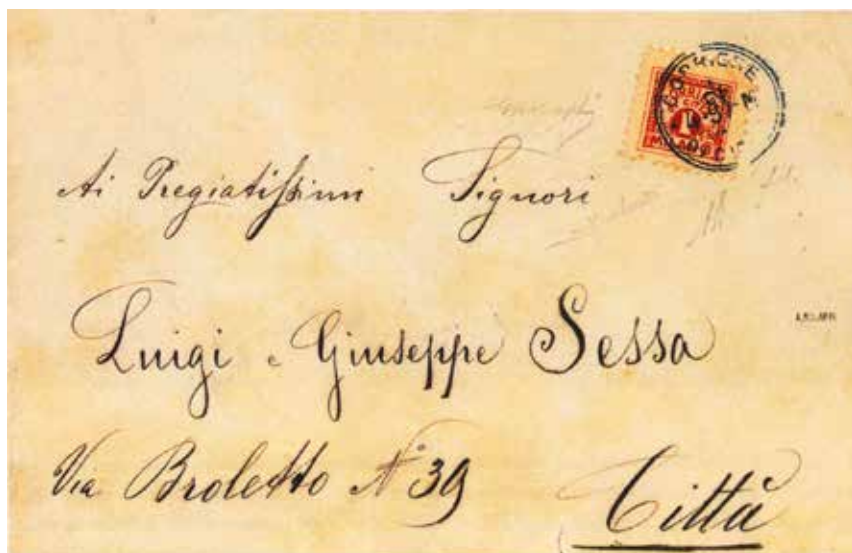 1
Ai Pregiatissimi Signori
Luigi e Giuseppe Sessa
Via Broletto N° 39
Città